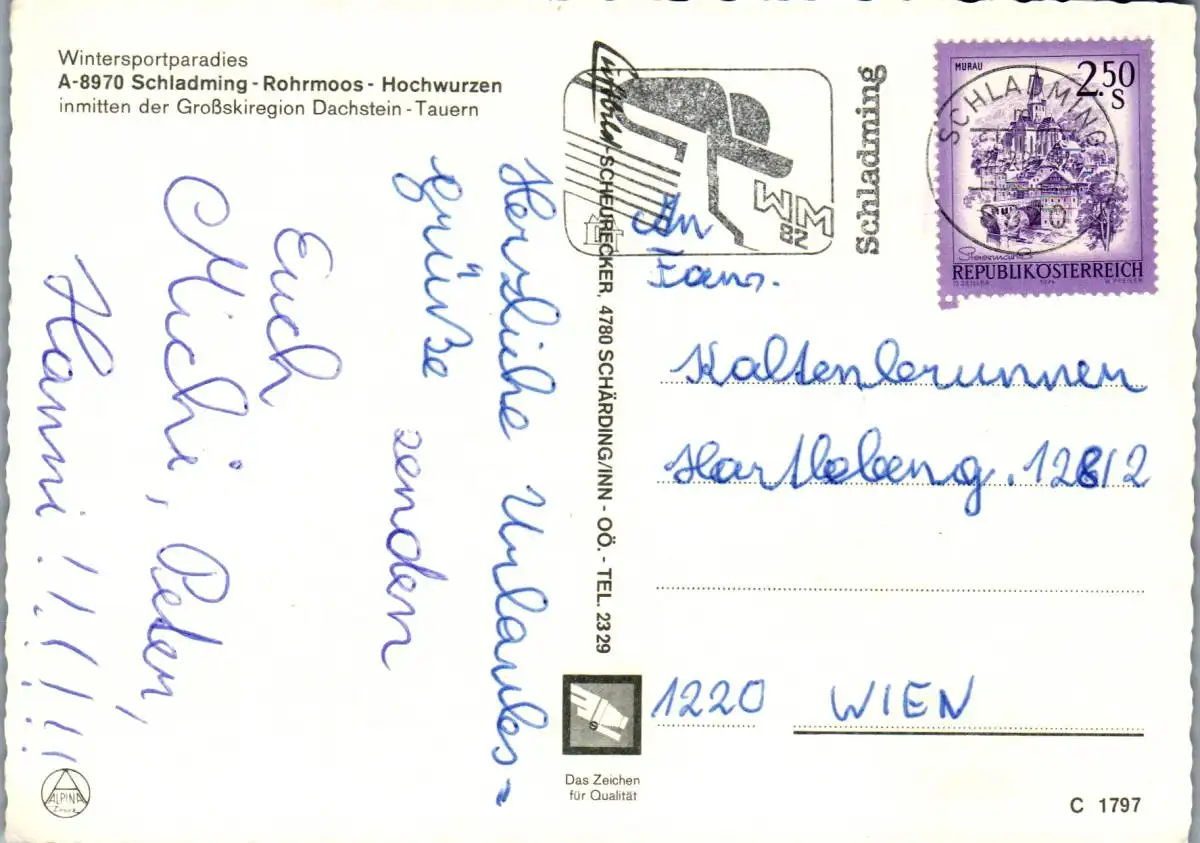 Wintersportparadies
A-8970 Schladming - Rohrmoos - Hochwurzen
inmitten der Großskiregion Dachstein - Tauern
Herzliche Urlaubs-
grüße
senden
Euch
Michi, Peter,
Hanni !!!!!!!
SCHEURECKER, 4780 SCHÄRDING/INN - OÖ. - TEL. 23 29
WM
82
Schladming
MURAU
2.50
S
SCHLADMING
Steiermark
REPUBLIK ÖSTERREICH
1974
An
Fam.
Kaltenbrunner
Hartlebeng. 126/2
1220 WIEN
Das Zeichen
für Qualität
ALPINA
Druck
C 1797